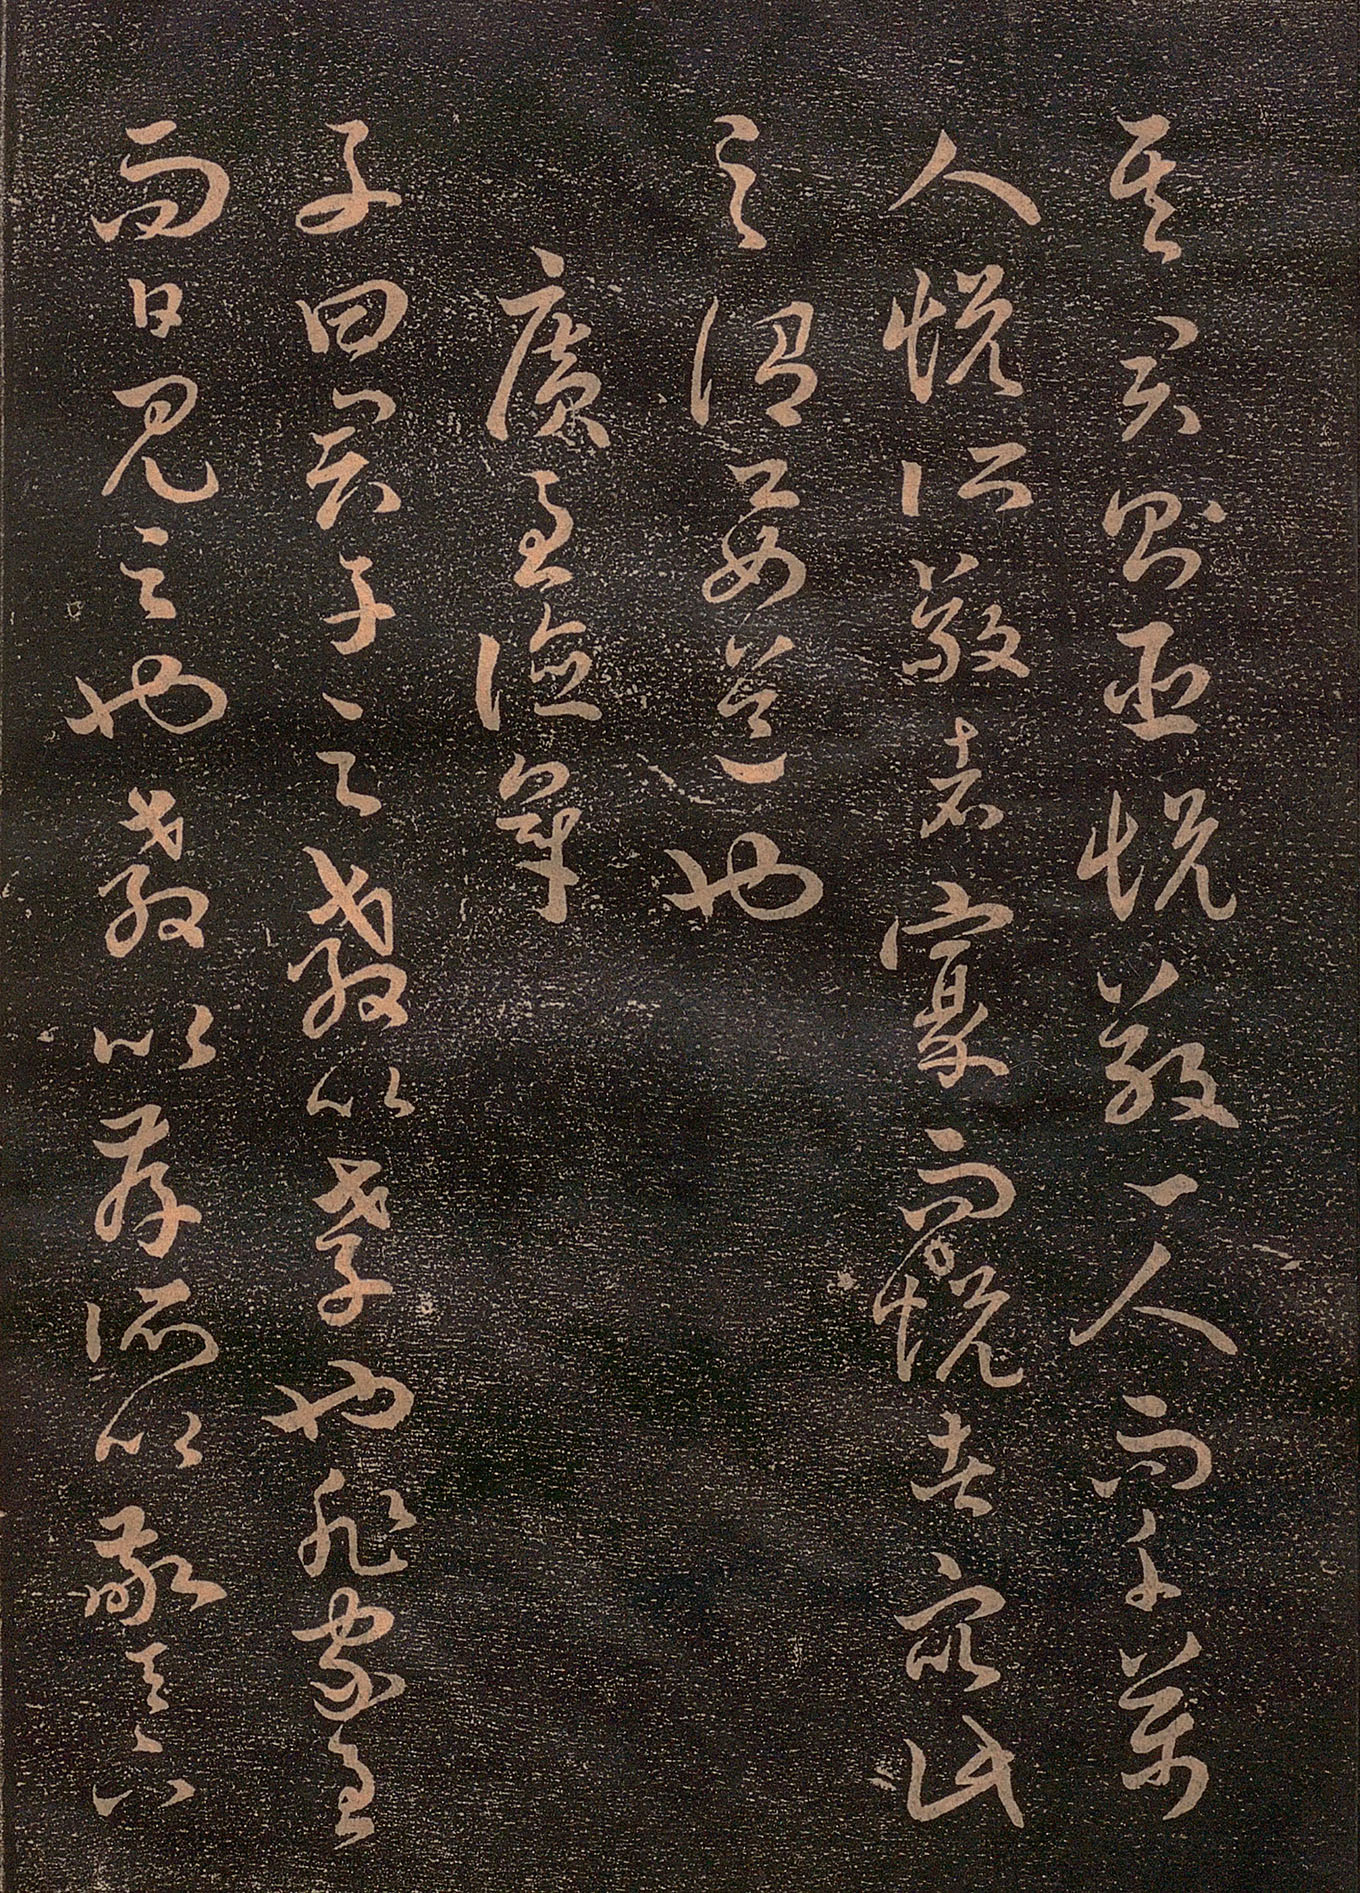 其君則臣悅敬一人而千萬
人悅所敬者寡而悅者眾此
之謂要道也
廣至德章
子曰君子之教以孝也非家至
而日見之也教以孝所以敬天下